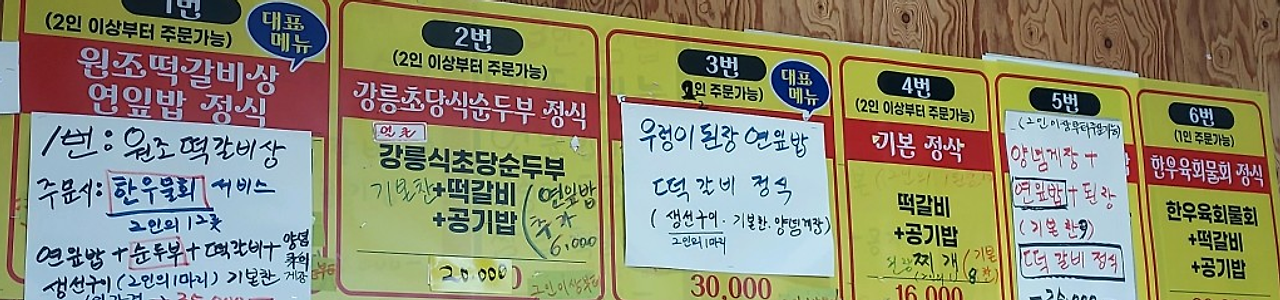 1번
(2인 이상부터 주문가능)
대표
메뉴
원조떡갈비상
연잎밥 정식
1번: 원조떡갈비상
주문시: 한우물회 서비스
2인의 1곳
연잎밥 + 순두부 + 떡갈비 +
생선구이 (2인의 1마리) 기본찬
2번
(2인 이상부터 주문가능)
강릉초당식순두부 정식
강릉식초당순두부
기본찬 +떡갈비
+공기밥
(연잎밥
추가
6,000
20.000
3번
2인 주문가능)
대표
메뉴
우렁이 된장 연잎밥
떡갈비 정식
(생선구이. 기본찬. 양념게장)
2인의 1마리
30,000
4번
(2인 이상부터 주문가능)
기본 정식
떡갈비
+공기밥
찌개
16,000
5번
(2인 이상부터 주문가능)
양념게장 +
연잎밥 + 된장
(기본찬9)
떡갈비 정식
6번
(1인 주문가능)
한우육회물회 정식
한우육회물회
+떡갈비
+공기밥